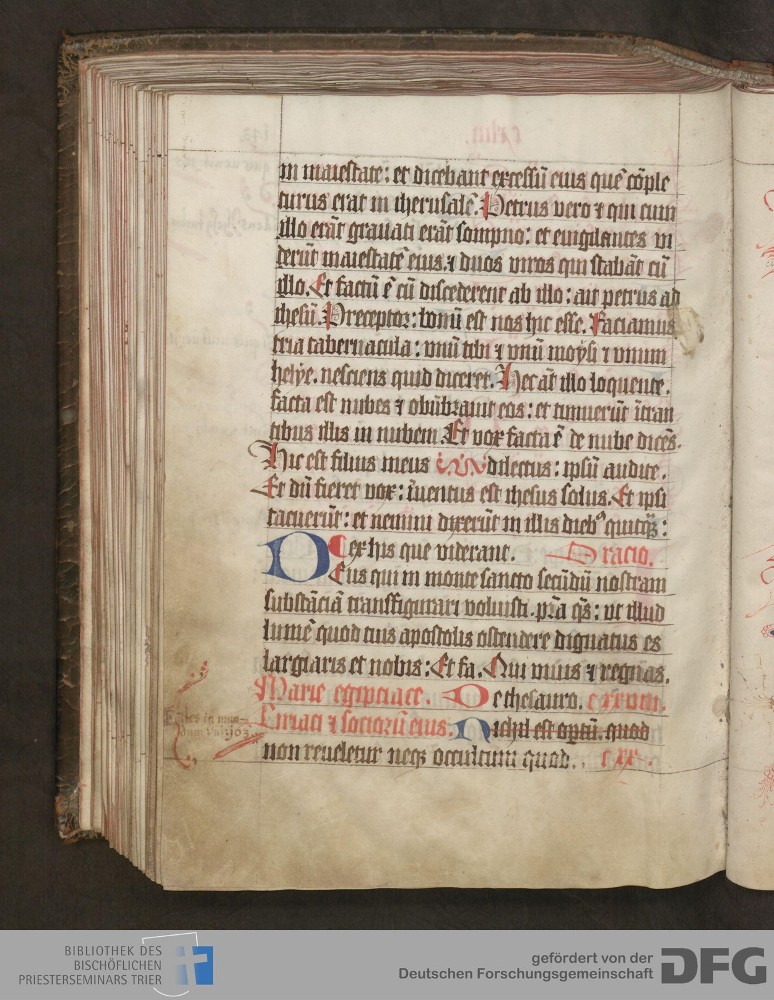 in maiestate: et dicebant excessū eius quē cōple
turus erat in iherusalē. Petrus vero ⁊ qui cum
illo erāt grauati erāt sompno: et euigilantes vi
derūt maiestatē eius. ⁊ duos viros qui stabāt cū
illo. Et factū ē cū discederent ab illo: ait petrus ad
ihesū. Preceptor: bonū est nos hic esse. Faciamus
tria tabernacula: vnū tibi ⁊ vnū moysi ⁊ vnum
helye. nesciens quid diceret. Hec āt illo loquente.
facta est nubes ⁊ obūbrauit eos: et timuerūt ītran
tibus illis in nubem. Et vox facta ē de nube dicēs.
Hic est filius meus dilectus: ipsū audite.
Et dū fieret vox: īuentus est ihesus solus. Et ipsi
tacuerūt: et nemini dixerūt in illis diebꝰ quitqꝫ:
ex his que viderant. Oracio.
Deus qui in monte sancto secūdū nostram
substāciā transfigurari voluisti. pr̄a q̄s: vt illud
lumē quod tuis apostolis ostendere dignatus es
largiaris et nobis: Et fa. Qui viuis ⁊ regnas.
Marie egipciace. De thesauro. cxxviii.
Ciriaci ⁊ sociorū eius. Nichil est optū. quod
non reueletur neqꝫ occultum quod. cxx.
BIBLIOTHEK DES
BISCHÖFLICHEN
PRIESTERSEMINARS TRIER
gefördert von der
Deutschen Forschungsgemeinschaft DFG